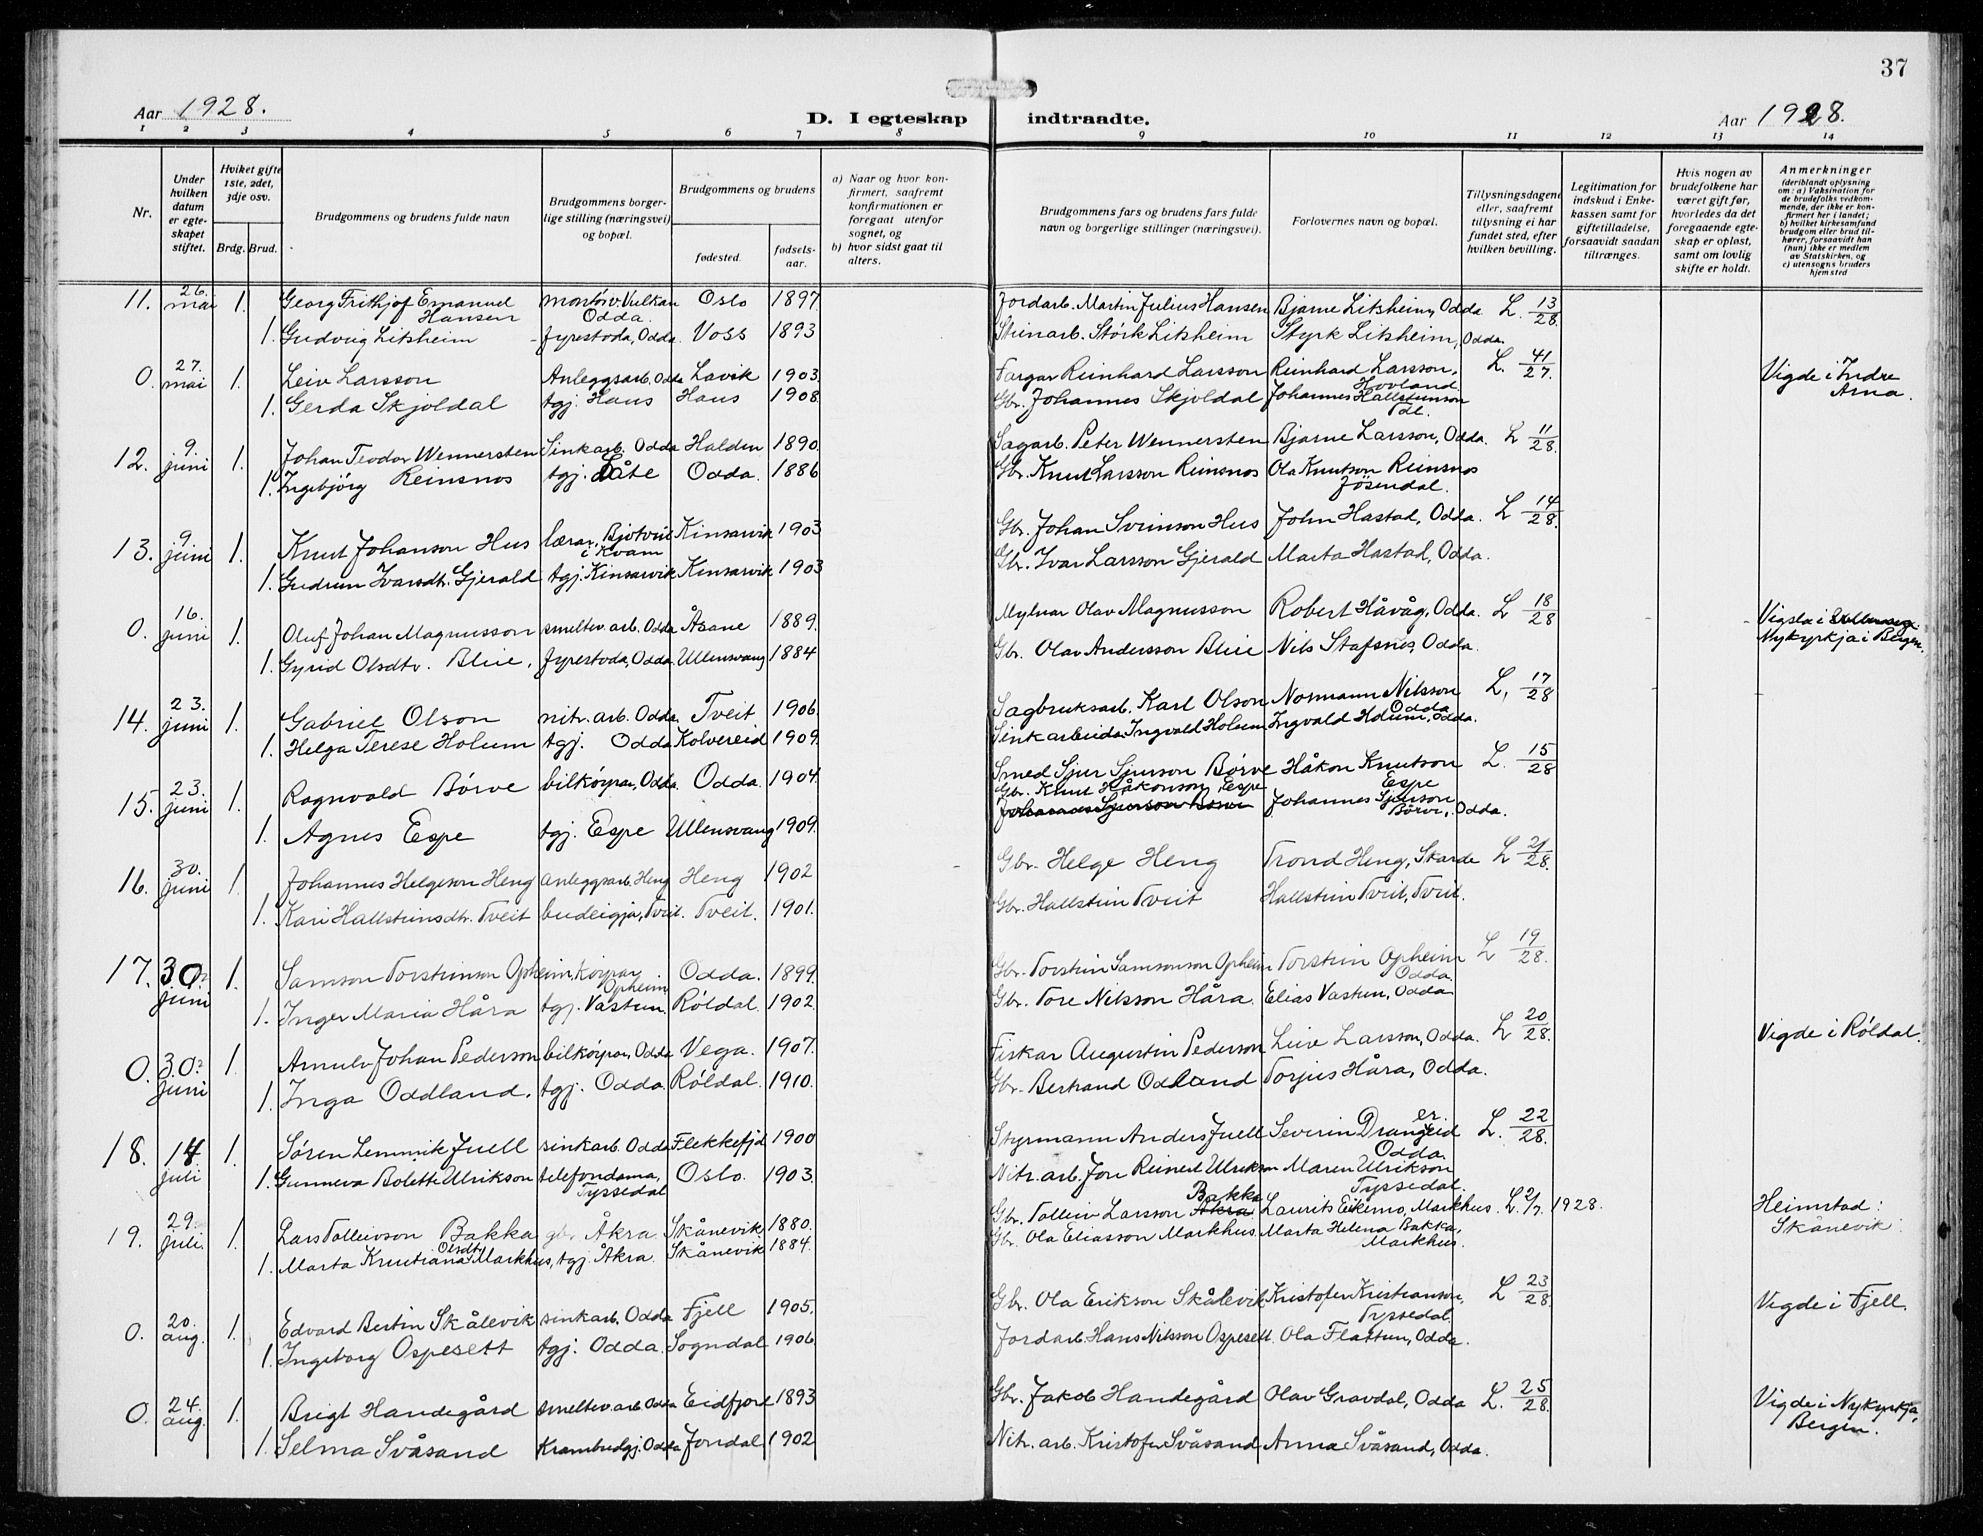 37
Aar 1928.
D. I egteskap indtraadte.
Aar 1928.
1 2 3 4 5 6 7 8 9 10 11 12 13 14
Nr.
Under hvilken datum er egteskapet stiftet.
Hvilket gifte 1ste, 2det, 3dje osv.
Brdg. Brud.
Brudgommens og brudens fulde navn
Brudgommens borgerlige stilling (næringsvei) og bopæl.
Brudgommens og brudens
fødested.
fødselsaar.
a) Naar og hvor konfirmert, saafremt konfirmationen er foregaat utenfor sognet, og
b) hvor sidst gaat til alters.
Brudgommens fars og brudens fars fulde navn og borgerlige stillinger (næringsvei).
Forlovernes navn og bopæl.
Tillysningsdagene eller, saafremt tillysning ei har fundet sted, efter hvilken bevilling.
Legitimation for indskud i Enkekassen samt for giftetilladelse, forsaavidt saadan tiltrænges.
Hvis nogen av brudefolkene har været gift før, hvorledes da det foregaaende egteskap er opløst, samt om lovlig skifte er holdt.
Anmerkninger
(deriblandt oplysning om: a) Vaksination for de brudefolks vedkommende, der ikke er konfirmert her i landet; b) hvilket kirkesamfund brudgom eller brud tilhører, forsaavidt han (hun) ikke er medlem av Statskirken, og c) utensogns bruders hjemsted
11. 26. mai 1. Georg Frithjof Emanuel Hansen montör v. Vulkan Odda. Oslo 1897 Jordarb. Martin Julius Hansen Bjarne Litsheim, Odda L. 13/28.
1. Gudvig Litsheim fyrestoda, Odda Voss 1893 Steinarb. Störk Litsheim Styrk Litsheim, Odda.
0. 27. mai 1. Leiv Larsson Anleggsarb. Odda Lavik 1903. Fargar Reinhard Larsson Reinhard Larsson, Hovland L. 41/27. Vigde i Indre Arna.
1. Gerda Skjoldal tgj. Haus Haus 1908. Gbr. Johannes Skjoldal Johannes Hallsteinson
12. 9. juni 1. Johan Teodor Wennersten Sinkarb. Odda Halden 1890. Sagarb. Peter Wennersten Bjarne Larsson, Odda. L 11/28.
1. Ingebjörg Reinsnos tgj. Låte Odda. 1886 Gbr. Knut Larsson Reinsnos Ola Knutson Reinsnos Jösendal.
13. 9. juni 1. Knut Johanson Hus lærar, i Kvam Kinsarvik 1903 Gbr. Johan Sveinson Hus John Hastad, Odda. L 14/28.
1. Gudrun Ivarsdtr. Gjerald tgj. Kinsarvik Kinsarvik 1903 Gbr. Ivar Larsson Gjerald Marta Hastad, Odda.
0. 16. juni 1. Oluf Johan Magnusson smeltev. arb. Odda Åsane 1889. Mylnar Olav Magnusson Robert Håvåg, Odda. L 18/28 Vigsla i Nykyrkja i Bergen.
1. Gyrid Olsdtr. Bleie, fyrestoda, Odda. Ullensvang 1884 Gbr. Olav Andersson Bleie Nils Stafsnes, Odda.
14. 23. juni 1. Gabriel Olson nitr. arb. Odda. Tveit 1906. Sagbruksarb. Karl Olson Normann Nilsson Odda L. 17/28
1. Helga Terese Holum tgj. Odda Kolvereid 1909. Sinkarbeida Ingvald Holum Ingvald Holum, Odda.
15. 23. juni 1. Ragnvald Börve bilköyrar, Odda. Odda. 1904. Smed Sjur Sjurson Börve Håkon Knutson Espe L. 15/28
1. Agnes Espe tgj. Espe Ullensvang 1909. Gbr. Knut Håkonson, Espe Johannes Sjurson Börve, Odda.
16. 30. juni 1. Johannes Helgeson Heng anleggsarb. Heng Heng 1902 Gbr. Helge Heng Trond Heng, Skarde L 21/28.
1. Kari Hallsteinsdtr. Tveit budeigja, Tveit. Tveit. 1901. Gbr. Hallstein Tveit Hallstein Tveit, Tveit.
17. 30. juni 1. Samson Torsteinson Opheim, köyrar Opheim Odda. 1899. Gbr. Torstein Samsonson Opheim Torstein Opheim Odda. L 19/28.
1. Inger Maria Håra tgj. Vastun Röldal. 1902. Gbr. Tore Nilsson Håra. Elias Vastun, Odda
0. 30. juni 1. Arnulv Johan Pederson bilköyrar, Odda Vega. 1907. Fiskar Augustin Pederson Leiv Larsson, Odda. L 20/28. Vigde i Röldal.
1. Inga Oddland. tgj. Odda. Röldal. 1910. Gbr. Bertrand Oddland Torjus Håra, Odda.
18. 14. juli 1. Sören Lemmik Juell sinkarb. Odda Flekkefjd 1900 Styrmann Anders Juell Severin Odda. L. 22/28.
1. Gunneva Bolette Ulrikson telefondama, Tyssedal Oslo. 1903. Nitr. arb. Jon Reinert Ulrikson Maren Ulrikson Tyssedal.
19. 29. juli. 1. Lars Tolleivson Bakka gbr. Åkra. Skånevik. 1880. Gbr. Tolleiv Larsson Åkra Bakka Laurits Eikemo, Markhus. L. 2/7. 1928. Heimstad: Skånevik.
1. Marta Knutiana Olsdtr. Markhus, tgj. Åkra. Skånevik 1884. Gbr. Ola Eliasson Markhus. Marta Helena Bakka, Markhus.
0. 20. aug. 1. Edvard Bertin Skålevik sinkarb. Odda Fjell 1905. Gbr. Ola Erikson Skålevik Kristofer Kristianson, Tyssedal. L 23/28. Vigde i Fjell.
1. Ingeborg Ospesett tgj. Odda. Sogndal 1906. Jordarb. Hans Nilsson Ospesett. Ola Flattun, Odda.
0. 24. aug. 1. Brigt Handegård smeltev. arb. Odda Eidfjord 1893 Gbr. Jakob Handegård Olav Gravdal, Odda L. 25/28. Vigde i Nykyrkja, Bergen.
1. Selma Svåsand Krambudgj. Odda Jondal 1902 Nitr. arb. Kristofer Svåsand Anna Svåsand, Odda.